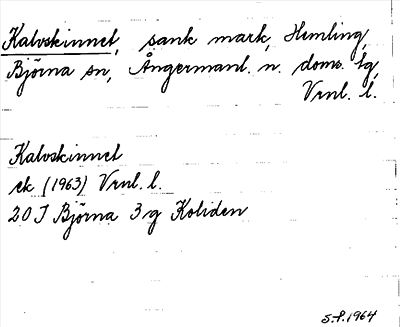 Kalvskinnet, sank mark, Hemling,
Björna sn, Ångermanl. n. doms. tg,
Vrnl. l.
Kalvskinnet
ek (1963) Vrnl. l.
20 J Björna 3 g Koliden
S.P. 1964